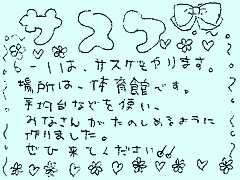 サスケ
一1は、サスケをやります。
場所は、体育館です。
平均台などを使い、
みなさんがたのしめるように
作りました。
ぜひ来てください!!